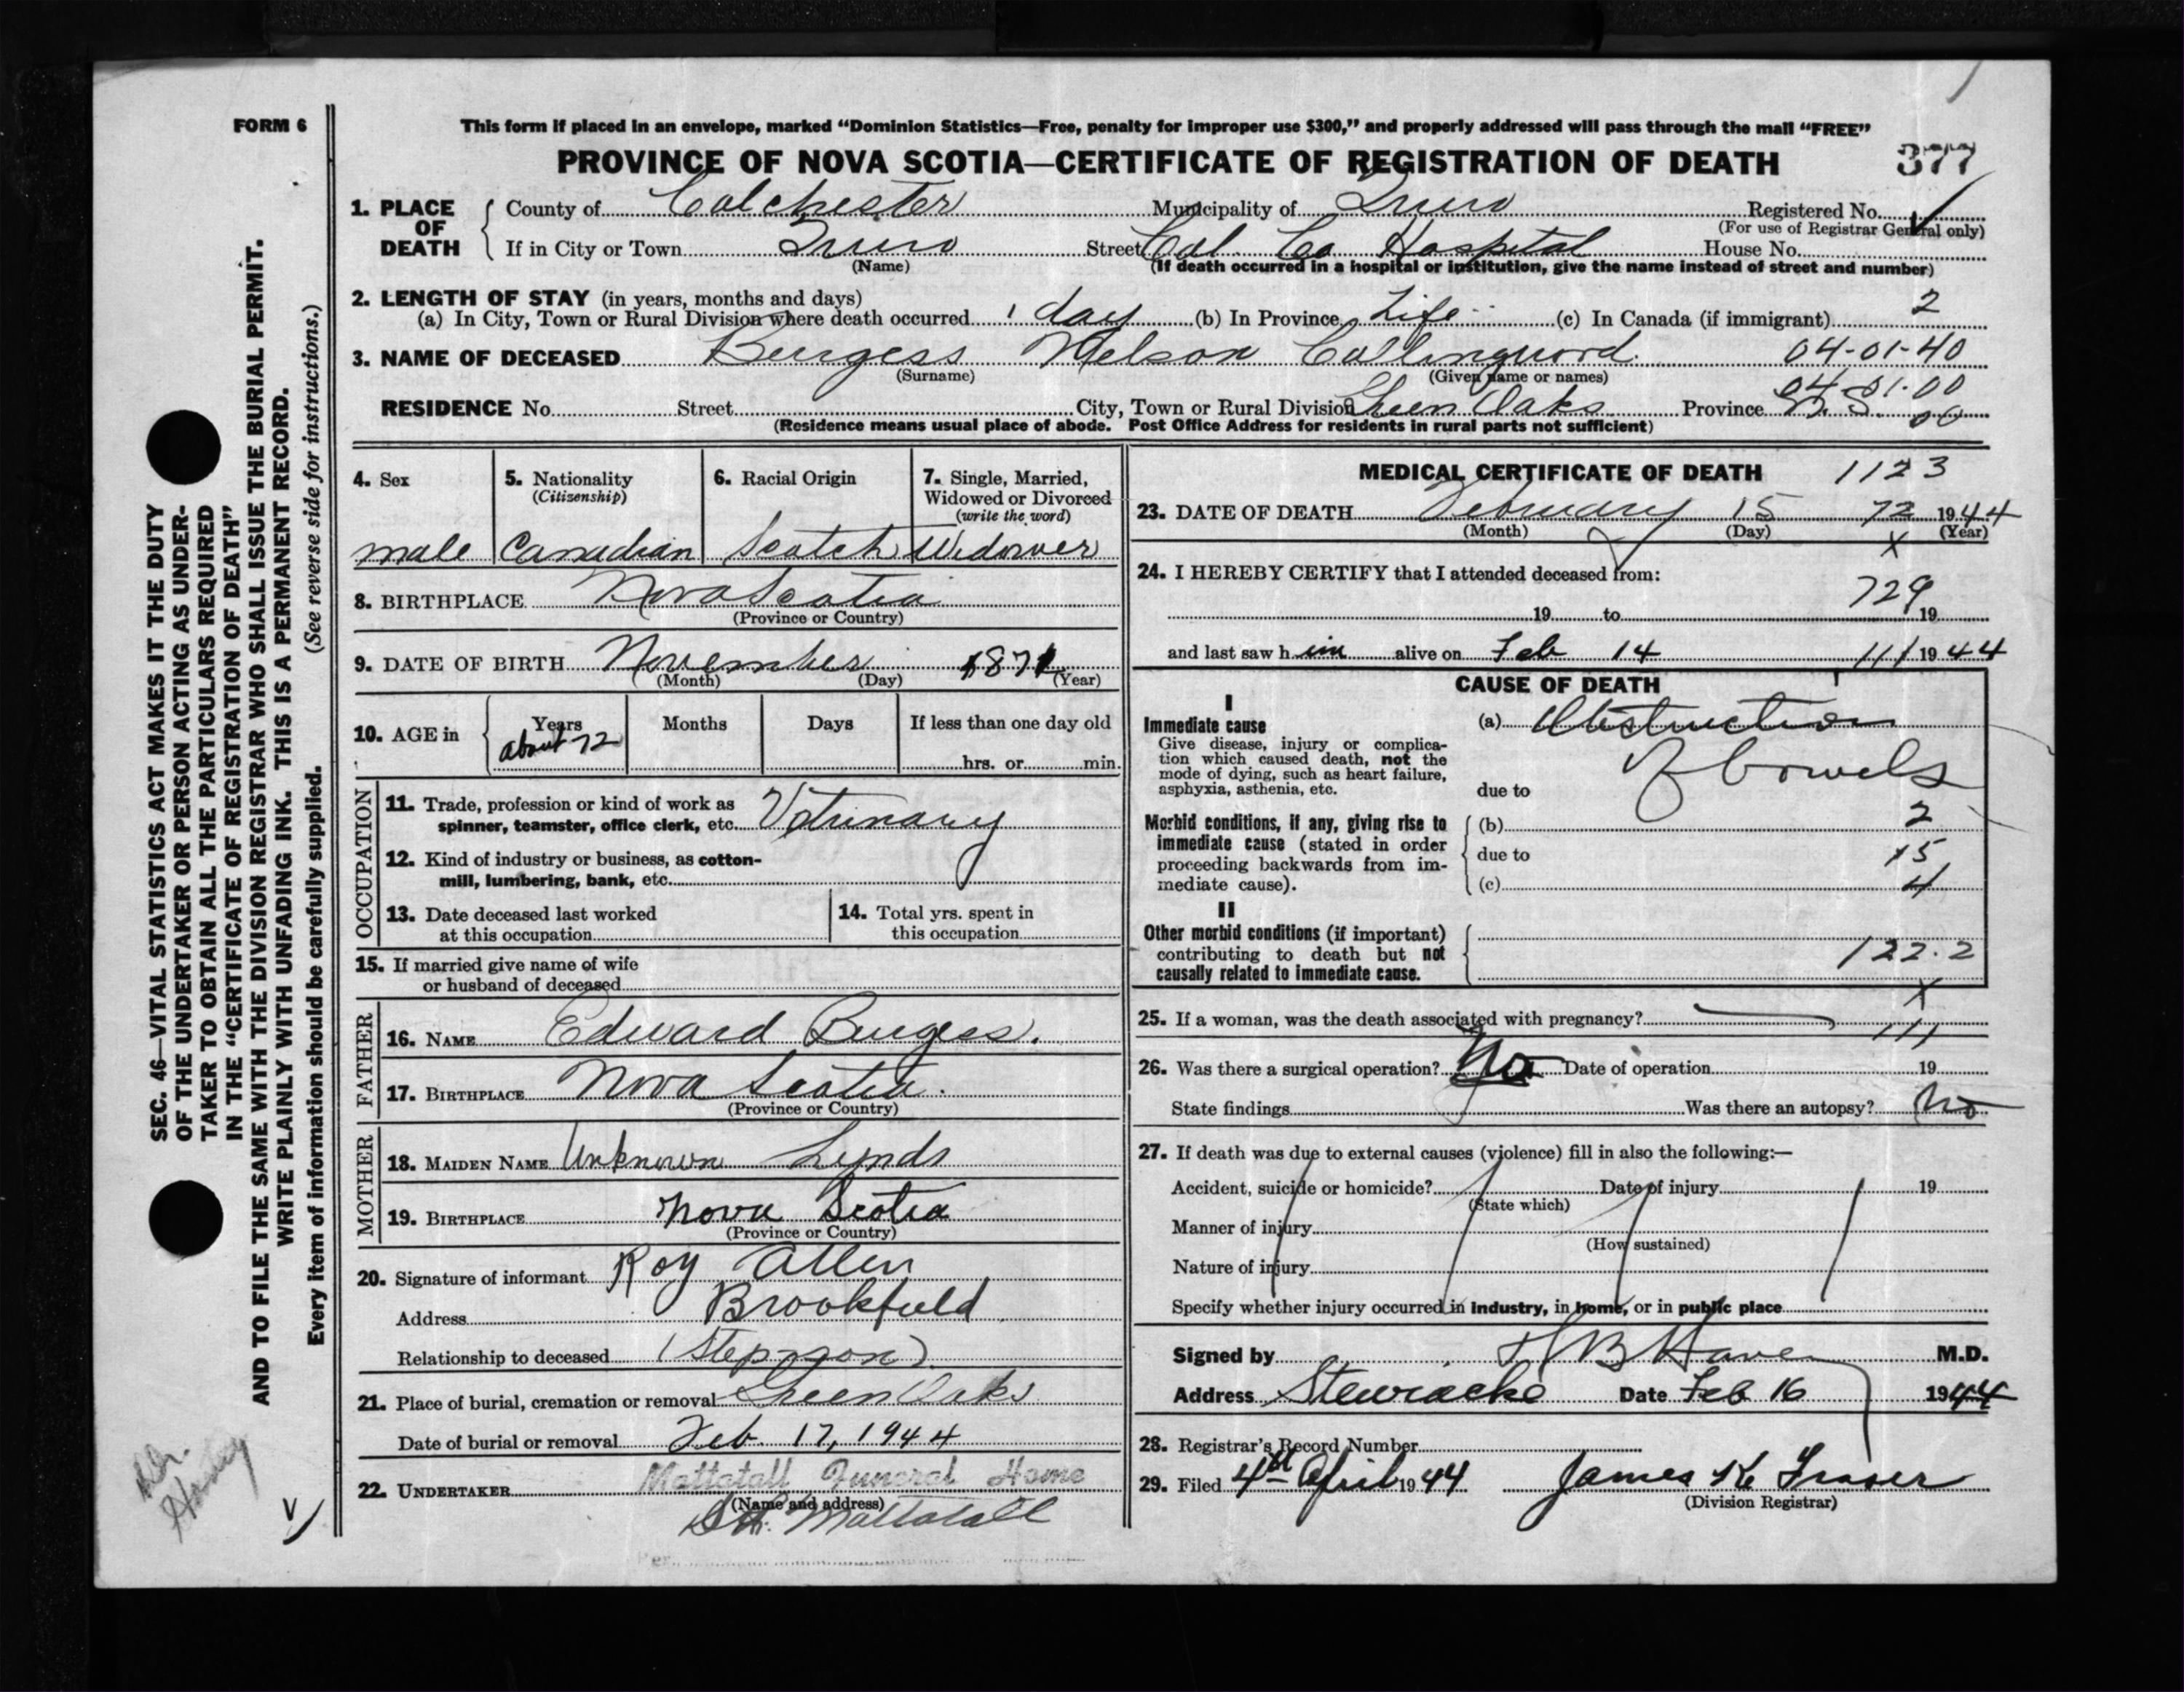 FORM 6
This form if placed in an envelope, marked “Dominion Statistics—Free, penalty for improper use $300,” and properly addressed will pass through the mail “FREE”
PROVINCE OF NOVA SCOTIA—CERTIFICATE OF REGISTRATION OF DEATH 377
1. PLACE OF DEATH County of Colchester Municipality of Truro Registered No.
(For use of Registrar General only)
If in City or Town Truro Street Col. Co Hospital House No.
(Name) (If death occurred in a hospital or institution, give the name instead of street and number)
2. LENGTH OF STAY (in years, months and days)
(a) In City, Town or Rural Division where death occurred 1 day (b) In Province Life (c) In Canada (if immigrant) 2
3. NAME OF DECEASED Burgess Nelson Collingwood 04-01-40
(Surname) (Given name or names)
04-01-00
RESIDENCE No. Street City, Town or Rural Division Green Oaks Province N.S. 00
(Residence means usual place of abode. Post Office Address for residents in rural parts not sufficient)
4. Sex 5. Nationality (Citizenship) 6. Racial Origin 7. Single, Married, Widowed or Divorced (write the word)
male Canadian Scotch Widower
8. BIRTHPLACE Nova Scotia
(Province or Country)
9. DATE OF BIRTH November 1871
(Month) (Day) (Year)
10. AGE in Years Months Days If less than one day old
about 72 hrs. or min.
OCCUPATION
11. Trade, profession or kind of work as
spinner, teamster, office clerk, etc. Vetrinary
12. Kind of industry or business, as cotton-
mill, lumbering, bank, etc.
13. Date deceased last worked
at this occupation
14. Total yrs. spent in
this occupation
15. If married give name of wife
or husband of deceased
FATHER
16. NAME Edward Burgess.
17. BIRTHPLACE Nova Scotia.
(Province or Country)
MOTHER
18. MAIDEN NAME Unknown Lynds
19. BIRTHPLACE Nova Scotia
(Province or Country)
20. Signature of informant Roy Allen
Address Brookfield
Relationship to deceased (Stepson)
21. Place of burial, cremation or removal Green Oaks
Date of burial or removal Feb. 17, 1944
22. UNDERTAKER Mattatall Funeral Home
(Name and address)
Mattatall
Per
MEDICAL CERTIFICATE OF DEATH 1123
23. DATE OF DEATH February 15 72 1944
(Month) (Day) (Year)
x
24. I HEREBY CERTIFY that I attended deceased from:
729
19 to 19
and last saw h im alive on Feb 14 111 1944
CAUSE OF DEATH
I
Immediate cause
Give disease, injury or complica-
tion which caused death, not the
mode of dying, such as heart failure,
asphyxia, asthenia, etc.
(a) Obstruction
of bowels
due to
Morbid conditions, if any, giving rise to
immediate cause (stated in order
proceeding backwards from im-
mediate cause).
(b) 2
due to 15
(c) 4
II
Other morbid conditions (if important)
contributing to death but not
causally related to immediate cause.
122.2
x
25. If a woman, was the death associated with pregnancy?
111
26. Was there a surgical operation? No Date of operation 19
State findings Was there an autopsy? No
27. If death was due to external causes (violence) fill in also the following:—
Accident, suicide or homicide? Date of injury 19
(State which)
Manner of injury
(How sustained)
Nature of injury
Specify whether injury occurred in industry, in home, or in public place
Signed by M.D.
Address Stewiacke Date Feb 16 1944
28. Registrar's Record Number
29. Filed 4th April 1944 James K Fraser
(Division Registrar)
SEC. 46—VITAL STATISTICS ACT MAKES IT THE DUTY
OF THE UNDERTAKER OR PERSON ACTING AS UNDER-
TAKER TO OBTAIN ALL THE PARTICULARS REQUIRED
IN THE “CERTIFICATE OF REGISTRATION OF DEATH”
AND TO FILE THE SAME WITH THE DIVISION REGISTRAR WHO SHALL ISSUE THE BURIAL PERMIT.
WRITE PLAINLY WITH UNFADING INK. THIS IS A PERMANENT RECORD.
Every item of information should be carefully supplied. (See reverse side for instructions.)